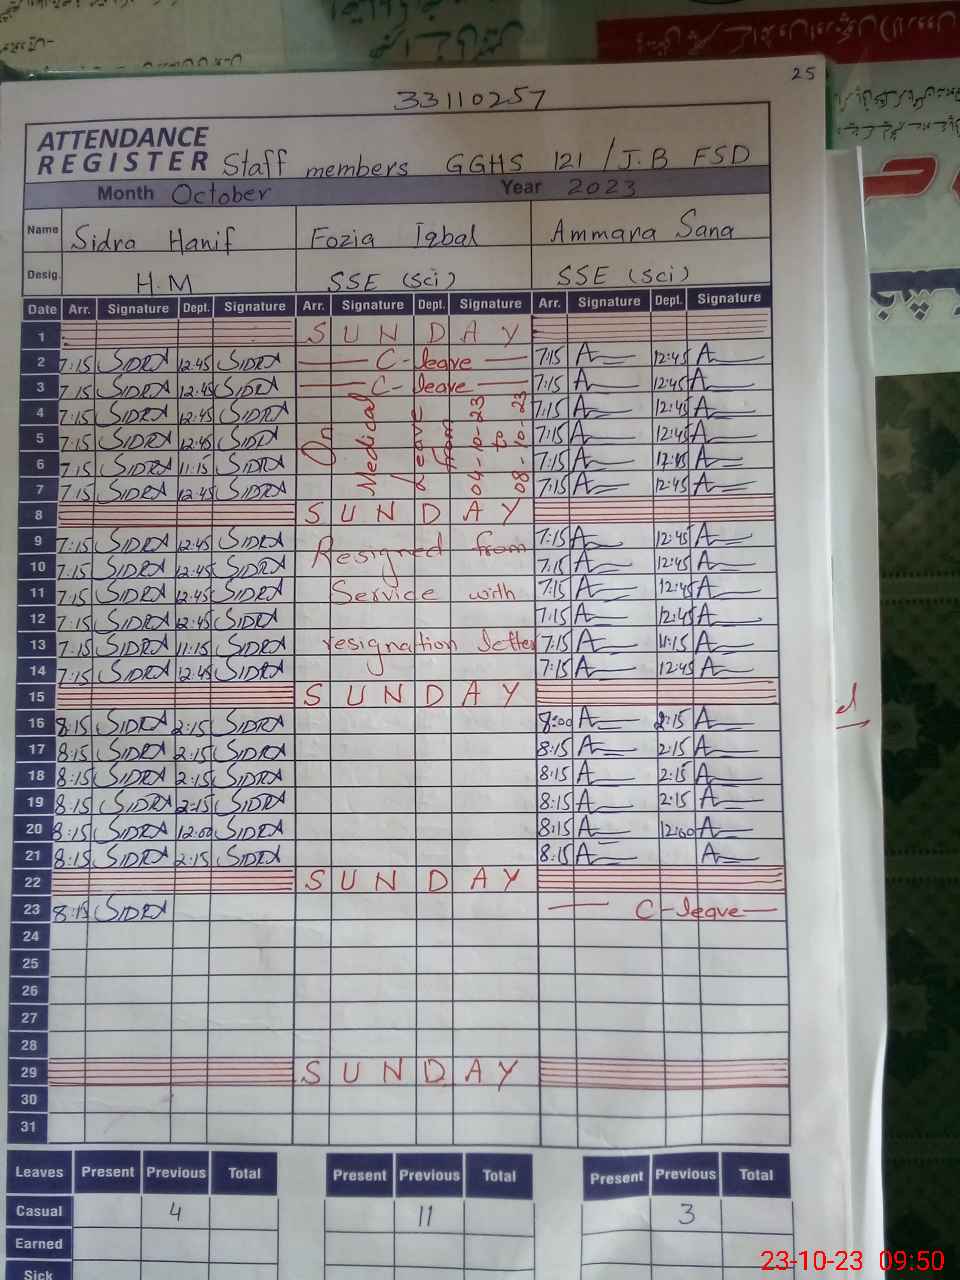 25
33110257
ATTENDANCE
REGISTER Staff members GGHS 121 / J.B FSD
Month October Year 2023
Name Sidra Hanif Fozia Iqbal Ammara Sana
Desig. H.M SSE (Sci) SSE (Sci)
Date Arr. Signature Dept. Signature Arr. Signature Dept. Signature Arr. Signature Dept. Signature
1 SUNDAY
2 7:15 SIDRA 12:45 SIDRA C-leave 7:15 A 12:45 A
3 7:15 SIDRA 12:45 SIDRA C-leave 7:15 A 12:45 A
4 7:15 SIDRA 12:45 SIDRA 7:15 A 12:45 A
5 7:15 SIDRA 12:45 SIDRA 7:15 A 12:45 A
6 7:15 SIDRA 11:15 SIDRA 7:15 A A
7 7:15 SIDRA 12:45 SIDRA 7:15 A 12:45 A
On Medical Leave from 04-10-23 to 08-10-23
8 SUNDAY
9 7:15 SIDRA 12:45 SIDRA Resigned from 7:15 A 12:45 A
10 7:15 SIDRA 12:45 SIDRA 7:15 A 12:45 A
11 7:15 SIDRA 12:45 SIDRA Service with 7:15 A 12:45 A
12 7:15 SIDRA 12:45 SIDRA 7:15 A 12:45 A
13 7:15 SIDRA 11:15 SIDRA resignation letter 7:15 A 11:15 A
14 7:15 SIDRA 12:45 SIDRA 7:15 A 12:45 A
15 SUNDAY
16 8:15 SIDRA 2:15 SIDRA 8:00 A 2:15 A
17 8:15 SIDRA 2:15 SIDRA 8:15 A 2:15 A
18 8:15 SIDRA 2:15 SIDRA 8:15 A 2:15 A
19 8:15 SIDRA 2:15 SIDRA 8:15 A 2:15 A
20 8:15 SIDRA 12:00 SIDRA 8:15 A 12:00 A
21 8:15 SIDRA 2:15 SIDRA 8:15 A A
22 SUNDAY
23 8:15 SIDRA C-leave
24
25
26
27
28
29 SUNDAY
30
31
Leaves Present Previous Total Present Previous Total Present Previous Total
Casual 4 11 3
Earned
Sick
23-10-23 09:50